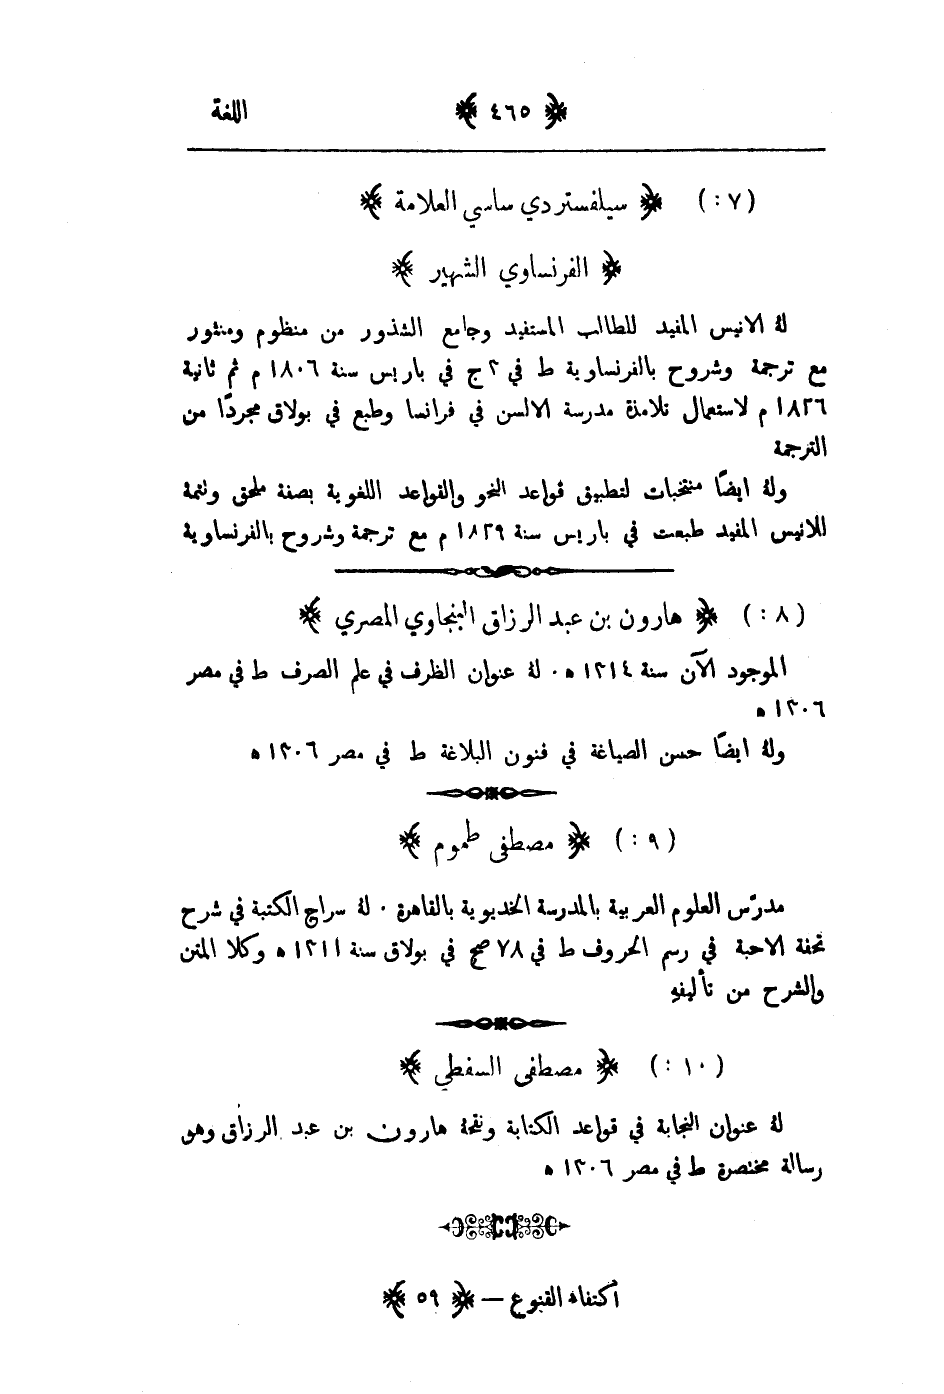 اللغة ﴿ ٤٦٥ ﴾
(٧ :) ﴿ سيلفستر دي ساسي العلامة ﴾
﴿ الفرنساوي الشهير ﴾
لهُ الانيس المفيد للطالب المستفيد وجامع الشذور من منظوم ومنثور
مع ترجمة وشروح بالفرنساوية ط في ٢ ج في باريس سنة ١٨٠٦ م ثم ثانية
١٨٢٦ م لاستعمال تلامذة مدرسة الالسن في فرانسا وطبع في بولاق مجردًا من
الترجمة
ولهُ ايضًا منتخبات لتطبيق قواعد النحو والقواعد اللغوية بصفة ملحق وتتمة
للانيس المفيد طبعت في باريس سنة ١٨٢٩ م مع ترجمة وشروح بالفرنساوية
(٨ :) ﴿ هارون بن عبد الرزاق البنجاوي المصري ﴾
الموجود الآن سنة ١٣١٤ ه ٠ لهُ عنوان الظرف في علم الصرف ط في مصر
١٣٠٦ ه
ولهُ ايضًا حسن الصياغة في فنون البلاغة ط في مصر ١٣٠٦ ه
(٩ :) ﴿ مصطفى طموم ﴾
مدرّس العلوم العربية بالمدرسة الخديوية بالقاهرة ٠ لهُ سراج الكتبة في شرح
تحفة الاحبة في رسم الحروف ط في ٧٨ صح في بولاق سنة ١٣١١ ه وكلا المتن
والشرح من تأليفهِ
(١٠ :) ﴿ مصطفى السفطي ﴾
لهُ عنوان النجابة في قواعد الكتابة ونقحهُ هارون بن عبد الرزاق وهو
رسالة مختصرة ط في مصر ١٣٠٦ ه
اكتفاء القنوع — ﴿ ٥٩ ﴾